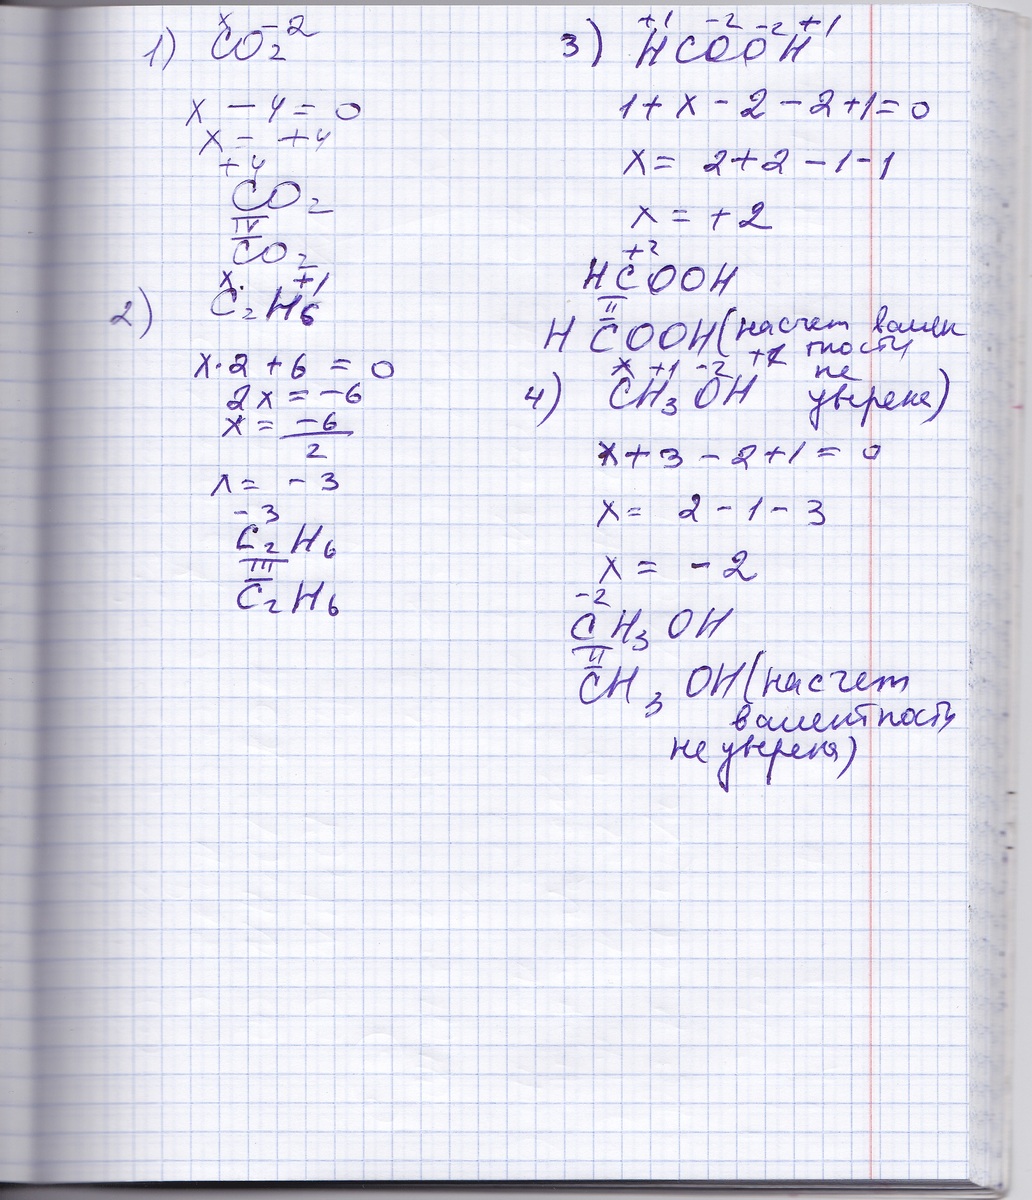 1) CO₂
x -2
x - 4 = 0
x = +4
+4
CO₂
IV
CO₂
2) C₂H₆
x +1
x·2 + 6 = 0
2x = -6
x = -6/2
x = -3
-3
C₂H₆
III
C₂H₆
3) HCOOH
+1 -2 -2 +1
1 + x - 2 - 2 + 1 = 0
x = 2 + 2 - 1 - 1
x = +2
+2
HCOOH
II
HCOOH (насчет вален
тности
не
уверена)
4) CH₃OH
x +1 -2 +1
x + 3 - 2 + 1 = 0
x = 2 - 1 - 3
x = -2
-2
CH₃OH
II
CH₃OH (насчет
валентности
не уверена)